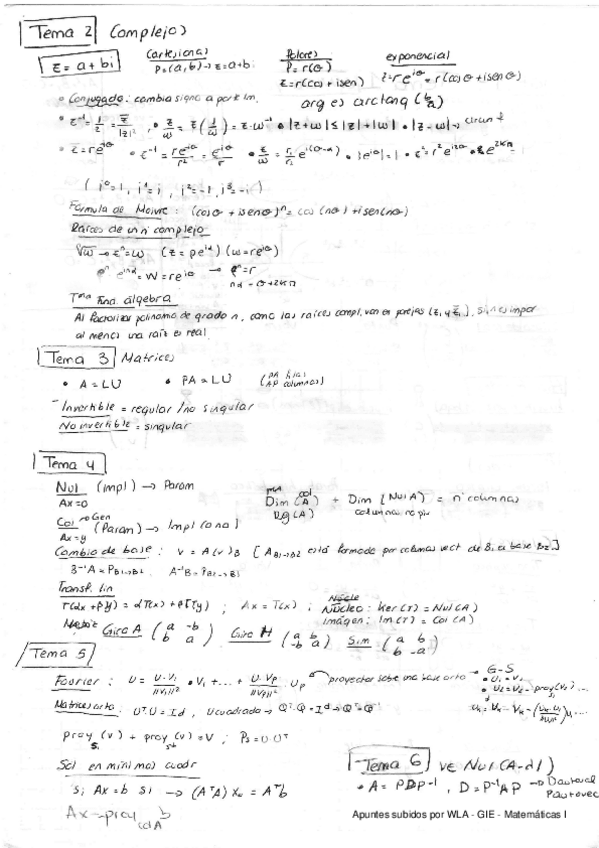 Tema 2 Complejos
Cartesianas Polares exponencial
z = a + bi P=(a,b) → z=a+bi P=r(θ) z=re^iθ = r(cos θ + isen θ)
z=r(cos + isen)
Conjugado: cambia signo a parte Im. arg es arctang (b/a)
• z^-1 = 1/z = z̄/|z|², • z/w = z(1/w) = z·w^-1 • |z+w| ≤ |z|+|w| • |z-w| →
(i^0=1, i^1=i, i^2=-1, i^3=-i)
Fórmula de Moivre: (cos θ + isen θ)^n = cos (nθ) + isen(nθ)
Raíces de un nº complejo
ⁿ√w → z^n=w (z=ρe^iα) (w=re^iθ)
ρ^n e^inα = w = re^iθ → ρ^n=r
nα = θ+2kπ
Tma Fun. álgebra
Al factorizar polinomio de grado n, como las raíces compl. van es parejas (z, y z̄,), si n es impar
al menos una raíz es real.
Tema 3 Matrices
• A = LU • PA = LU (PA filas
AP columnas)
- Invertible = regular / no singular
No invertible = singular
Tema 4
Nul (impl) → Param
Ax=0
Dim (A) + Dim (Nul A) = nº columnas
Rg(A)
Col → Gen (Param) → Impl
Ax=y
Cambio de base: v = A(v)B [A B1→B2 está formada por columnas vect de B1 en base B2]
B^-1 A = P B1→B2 A^-1 B = P B2→B1
Transf. lin
T(αx + βy) = αT(x) + βT(y) ; Ax = T(x) ; Núcleo: Ker(T) = Nul(A)
Imágen: Im(T) = Col(A)
Gira A (a -b
b a) Gira H (a b
-b a) Sim (a b
b -a)
Tema 5
G-S
Fourier: U = U·V1/||V1||² • V1 + ... + U·Vp/||Vp||² · Vp proyectar sobre una base orto
• U1 = V1
• U2 = V2 - proy (V2) ...
Matrices orto: U^T·U = Id, U cuadrada → Q^T·Q = Id → Q^T = Q^-1
proy (v) + proy (v) = v ; Ps = U U^T
S S⊥
Sol en mínimos cuadr
Si Ax = b si → (A^T A) x0 = A^T b
Ax = proy b
col A
Tema 6 VE Nul (A-λI)
• A = PDP^-1, D = P^-1 AP → D autoval
P autovec
Apuntes subidos por WLA - GIE - Matemáticas I